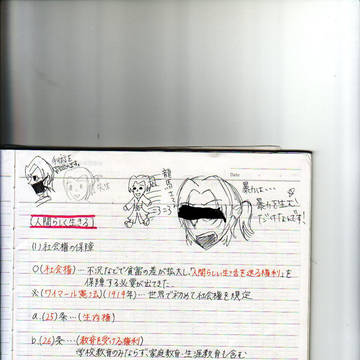 先生
龍馬さん
ころころ
Date
暴力は…
暴力を生む
だけなんです!
人間らしく生きる
(1)社会権の保障
○(社会権)…不況などで貧富の差が拡大し、「人間らしい生活を送る権利」を
保障する必要が出てきた。
※(ワイマール憲法)(1919年)…世界で初めて社会権を規定
a.(25)条…(生存権)
b.(26)条…(教育を受ける権利)
学校教育のみならず、家庭教育・生涯教育も含む